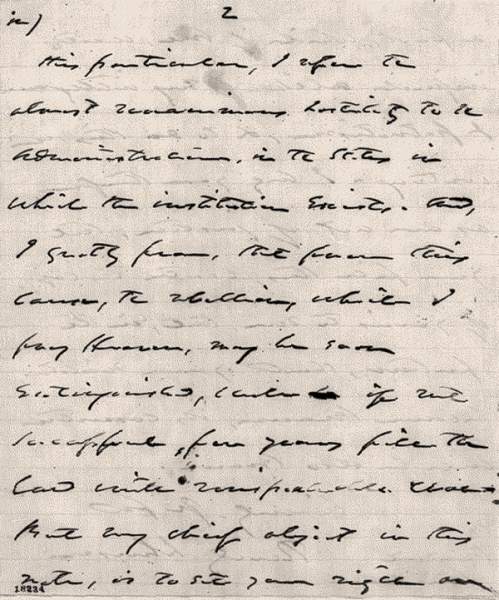 in)
2
this particular, I refer to
almost unanimous hostility to the
Administration, in the States in
which the institution exists. And,
I greatly fear, that from this
cause, the rebellion, which I
pray Heaven, may be soon
extinguished, if not
suppressed, for years fill the
land with
But my chief object in this
note, is to set you right on
18234